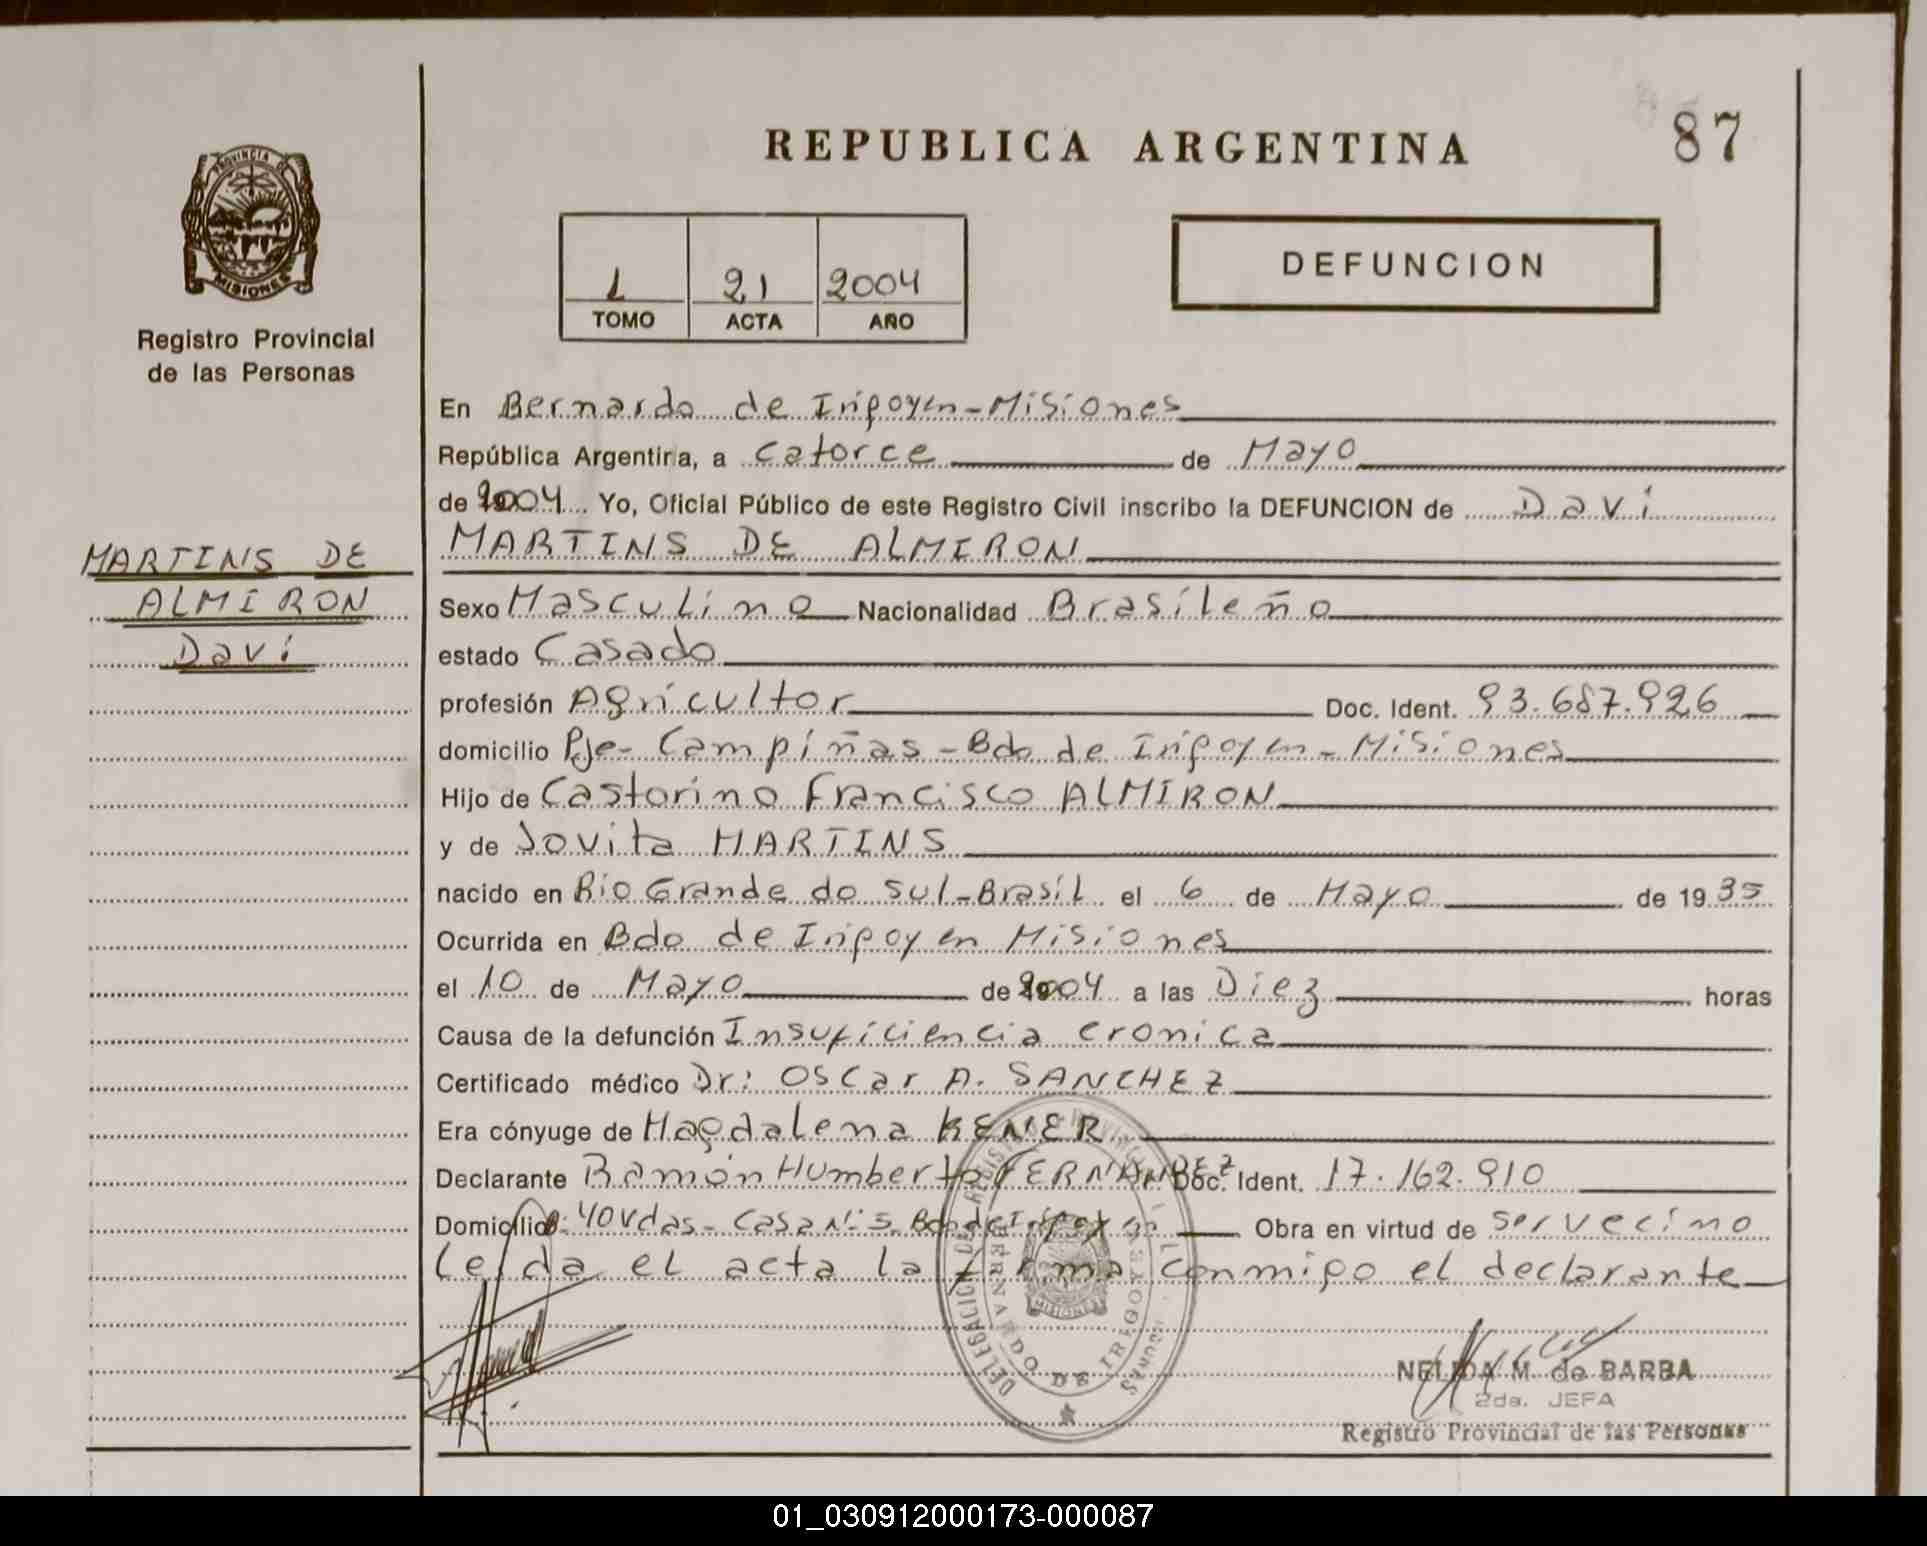 REPUBLICA ARGENTINA
87
PROVINCIA DE
MISIONES
Registro Provincial
de las Personas
1 21 2004
TOMO ACTA AÑO
DEFUNCION
En Bernardo de Irigoyen - Misiones
República Argentina, a catorce de Mayo
de 2004 Yo, Oficial Público de este Registro Civil inscribo la DEFUNCION de Davi
MARTINS DE ALMIRON
MARTINS DE
ALMIRON
Davi
Sexo Masculino Nacionalidad Brasileño
estado Casado
profesión Agricultor Doc. Ident. 93.687.926
domicilio Pje - Campiñas - Bdo de Irigoyen - Misiones
Hijo de Castorino Francisco ALMIRON
y de Jovita MARTINS
nacido en Rio Grande do Sul - Brasil el 6 de Mayo de 1935
Ocurrida en Bdo de Irigoyen Misiones
el 10 de Mayo de 2004 a las Diez horas
Causa de la defunción Insuficiencia cronica
Certificado médico Dr: Oscar A. SANCHEZ
Era cónyuge de Magdalena KENER
Declarante Ramón Humberto FERNANDEZ Doc. Ident. 17.162.910
Domicilio: 40 Vdas - Casa N: 5 Bdo de Irigoyen Obra en virtud de ser vecino
Leida el acta la firma conmigo el declarante
DELEGACION DEL REGISTRO PROVINCIAL
BERNARDO DE IRIGOYEN
MISIONES
NELIDA M. de BARBA
2da. JEFA
Registro Provincial de las Personas
01_030912000173-000087